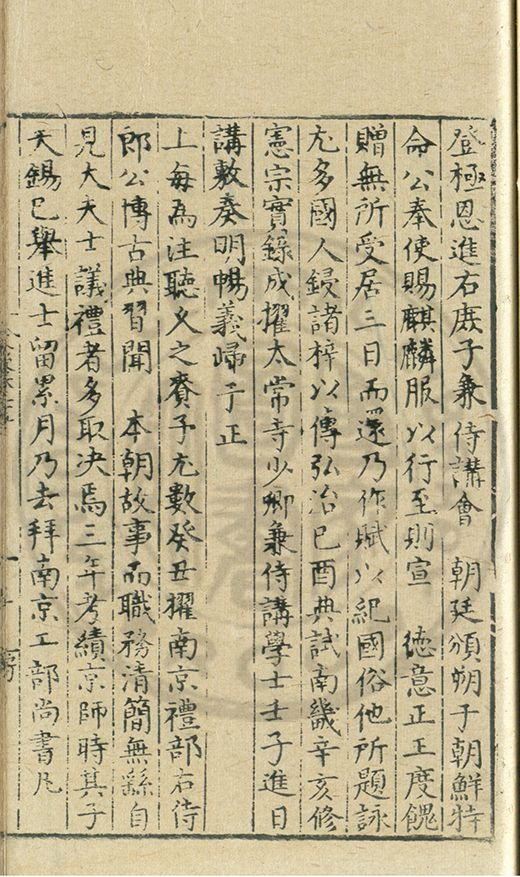 登極恩進右庶子兼侍講會　朝廷頒朔于朝鮮特
命公奉使賜麒麟服以行至則宣　徳意正王度餽
贈無所受居三日而還乃作賦以紀國俗他所題詠
尤多國人鋟諸梓以傳弘治己酉典試南畿辛亥修
憲宗實錄成擢太常寺少卿兼侍講學士壬子進日
講敷奏明暢義歸于正
上每為注聽久之賚予尤數癸丑擢南京禮部右侍
郎公博古典習聞　本朝故事而職務清簡無繇自
見大夫士議禮者多取決焉三年考績京師時其子
天錫已舉進士留累月乃去拜南京工部尚書凡